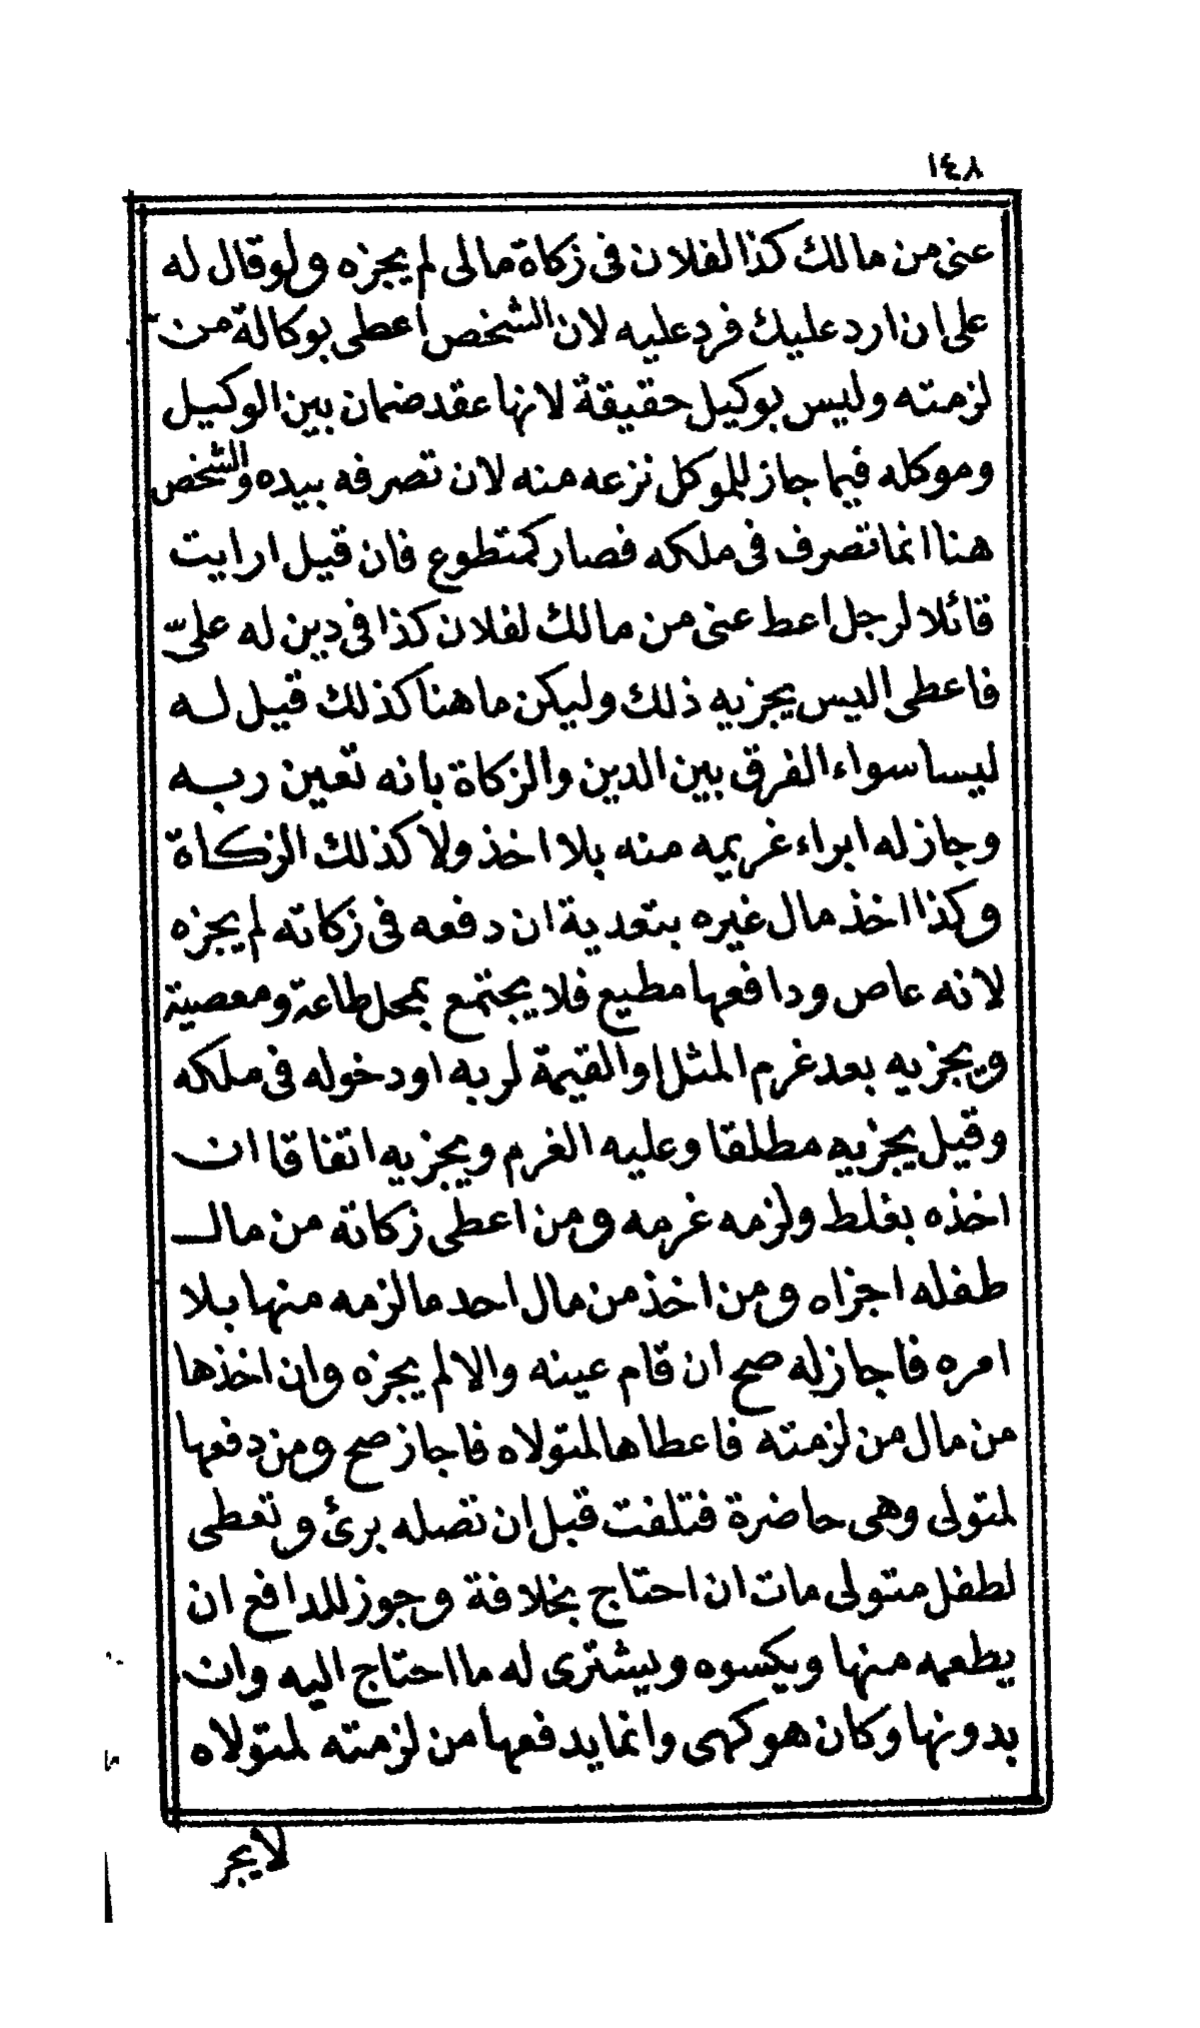 ١٤٨
عنى من مالك كذا لفلان فى زكاة مالى لم يجزه ولو قال له
على ان ارد عليك فرد عليه لان الشخص اعطى بوكالة من
لزمته وليس بوكيل حقيقة لانها عقد ضمان بين الوكيل
وموكله فيما جاز للموكل نزعه منه لان تصرفه بيده والشخص
هنا انما تصرف فى ملكه فصار كمتطوع فان قيل ارايت
قائلا لرجل اعط عنى من مالك لفلان كذا فى دين له علىّ
فاعطى اليس يجزيه ذلك وليكن ما هنا كذلك قيل له
ليسا سواء الفرق بين الدين والزكاة بانه تعين ربه
وجاز له ابراء غريمه منه بلا اخذ ولا كذلك الزكاة
وكذا اخذ مال غيره بتعدية ان دفعه فى زكاته لم يجزه
لانه عاص ودافعها مطيع فلا يجتمع بمحل طاعة ومعصية
ويجزيه بعد غرم المثل او القيمة لربه او دخوله فى ملكه
وقيل يجزيه مطلقا وعليه الغرم ويجزيه اتفاقا ان
اخذه بغلط ولزمه غرمه ومن اعطى زكاته من مال
طفله اجزاه ومن اخذ من مال احد ما لزمه منها بلا
امره فاجاز له صح ان قام عينه والا لم يجزه وان اخذها
من مال من لزمته فاعطاها لمتولاه فاجاز صح ومن دفعها
لمتولى وهى حاضرة فتلفت قبل ان تصله برئ وتعطى
لطفل متولى مات ان احتاج بخلافة وجوز للدافع ان
يطعمه منها ويكسوه ويشترى له ما احتاج اليه وان
بدونها وكان هو كهى وانما يدفعها من لزمته لمتولاه
لا يجر